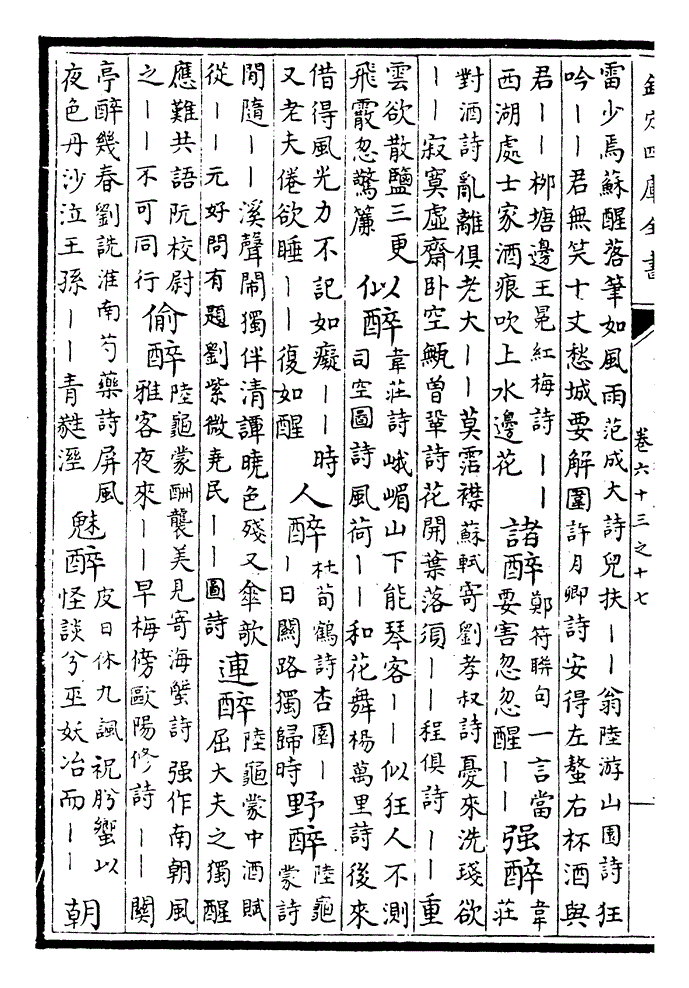 欽定四庫全書
卷六十三之十七
雷少焉蘇醒落筆如風雨范成大詩兒扶〡〡翁陸游山園詩狂
吟〡〡君無笑十丈愁城要解圍許月卿詩安得左螯右杯酒與
君〡〡柳塘邊王冕紅梅詩〡〡
西湖處士家酒痕吹上水邊花
諸醉
鄭符聯句一言當
要害忽忽醒〡〡
强醉
韋
莊
對酒詩亂離俱老大〡〡莫霑襟蘇軾寄劉孝叔詩憂來洗琖欲
〡〡寂寞虛齋卧空甒曾鞏詩花開葉落須〡〡程俱詩〡〡重
雲欲散鹽三更
飛霰忽驚簾
似醉
韋莊詩峨嵋山下能琴客〡〡似狂人不測
司空圖詩風荷〡〡和花舞楊萬里詩後來
借得風光力不記如癡〡〡時
又老夫倦欲睡〡〡復如醒
人醉
杜荀鶴詩杏園〡
〡日關路獨歸時
野醉
陸龜
蒙詩
閒隨〡〡溪聲鬧獨伴清譚曉色殘又傘歌
從〡〡元好問有題劉紫微堯民〡〡圖詩
連醉
陸龜蒙中酒賦
屈大夫之獨醒
應難共語阮校尉
之〡〡不可同行
偷醉
陸龜蒙酬襲美見寄海蟹詩强作南朝風
雅客夜來〡〡早梅傍歐陽修詩〡〡關
亭醉幾春劉詵淮南芍藥詩屏風
夜色丹沙泣王孫〡〡青麰溼
魅醉
皮日休九諷祝肸蠁以
怪談兮巫妖冶而〡〡
朝